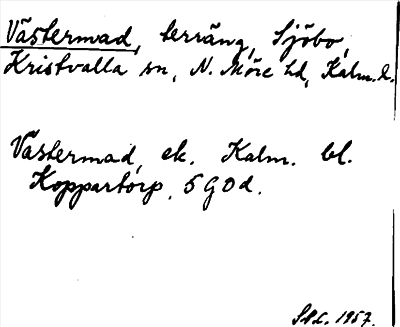 Västermad, terräng, Sjöbo,
Kristvalla sn, N. Möre hd, Kalm. l.
Västermad, ek. Kalm. bl.
Koppartorp. 5 G 0 d.
1957.